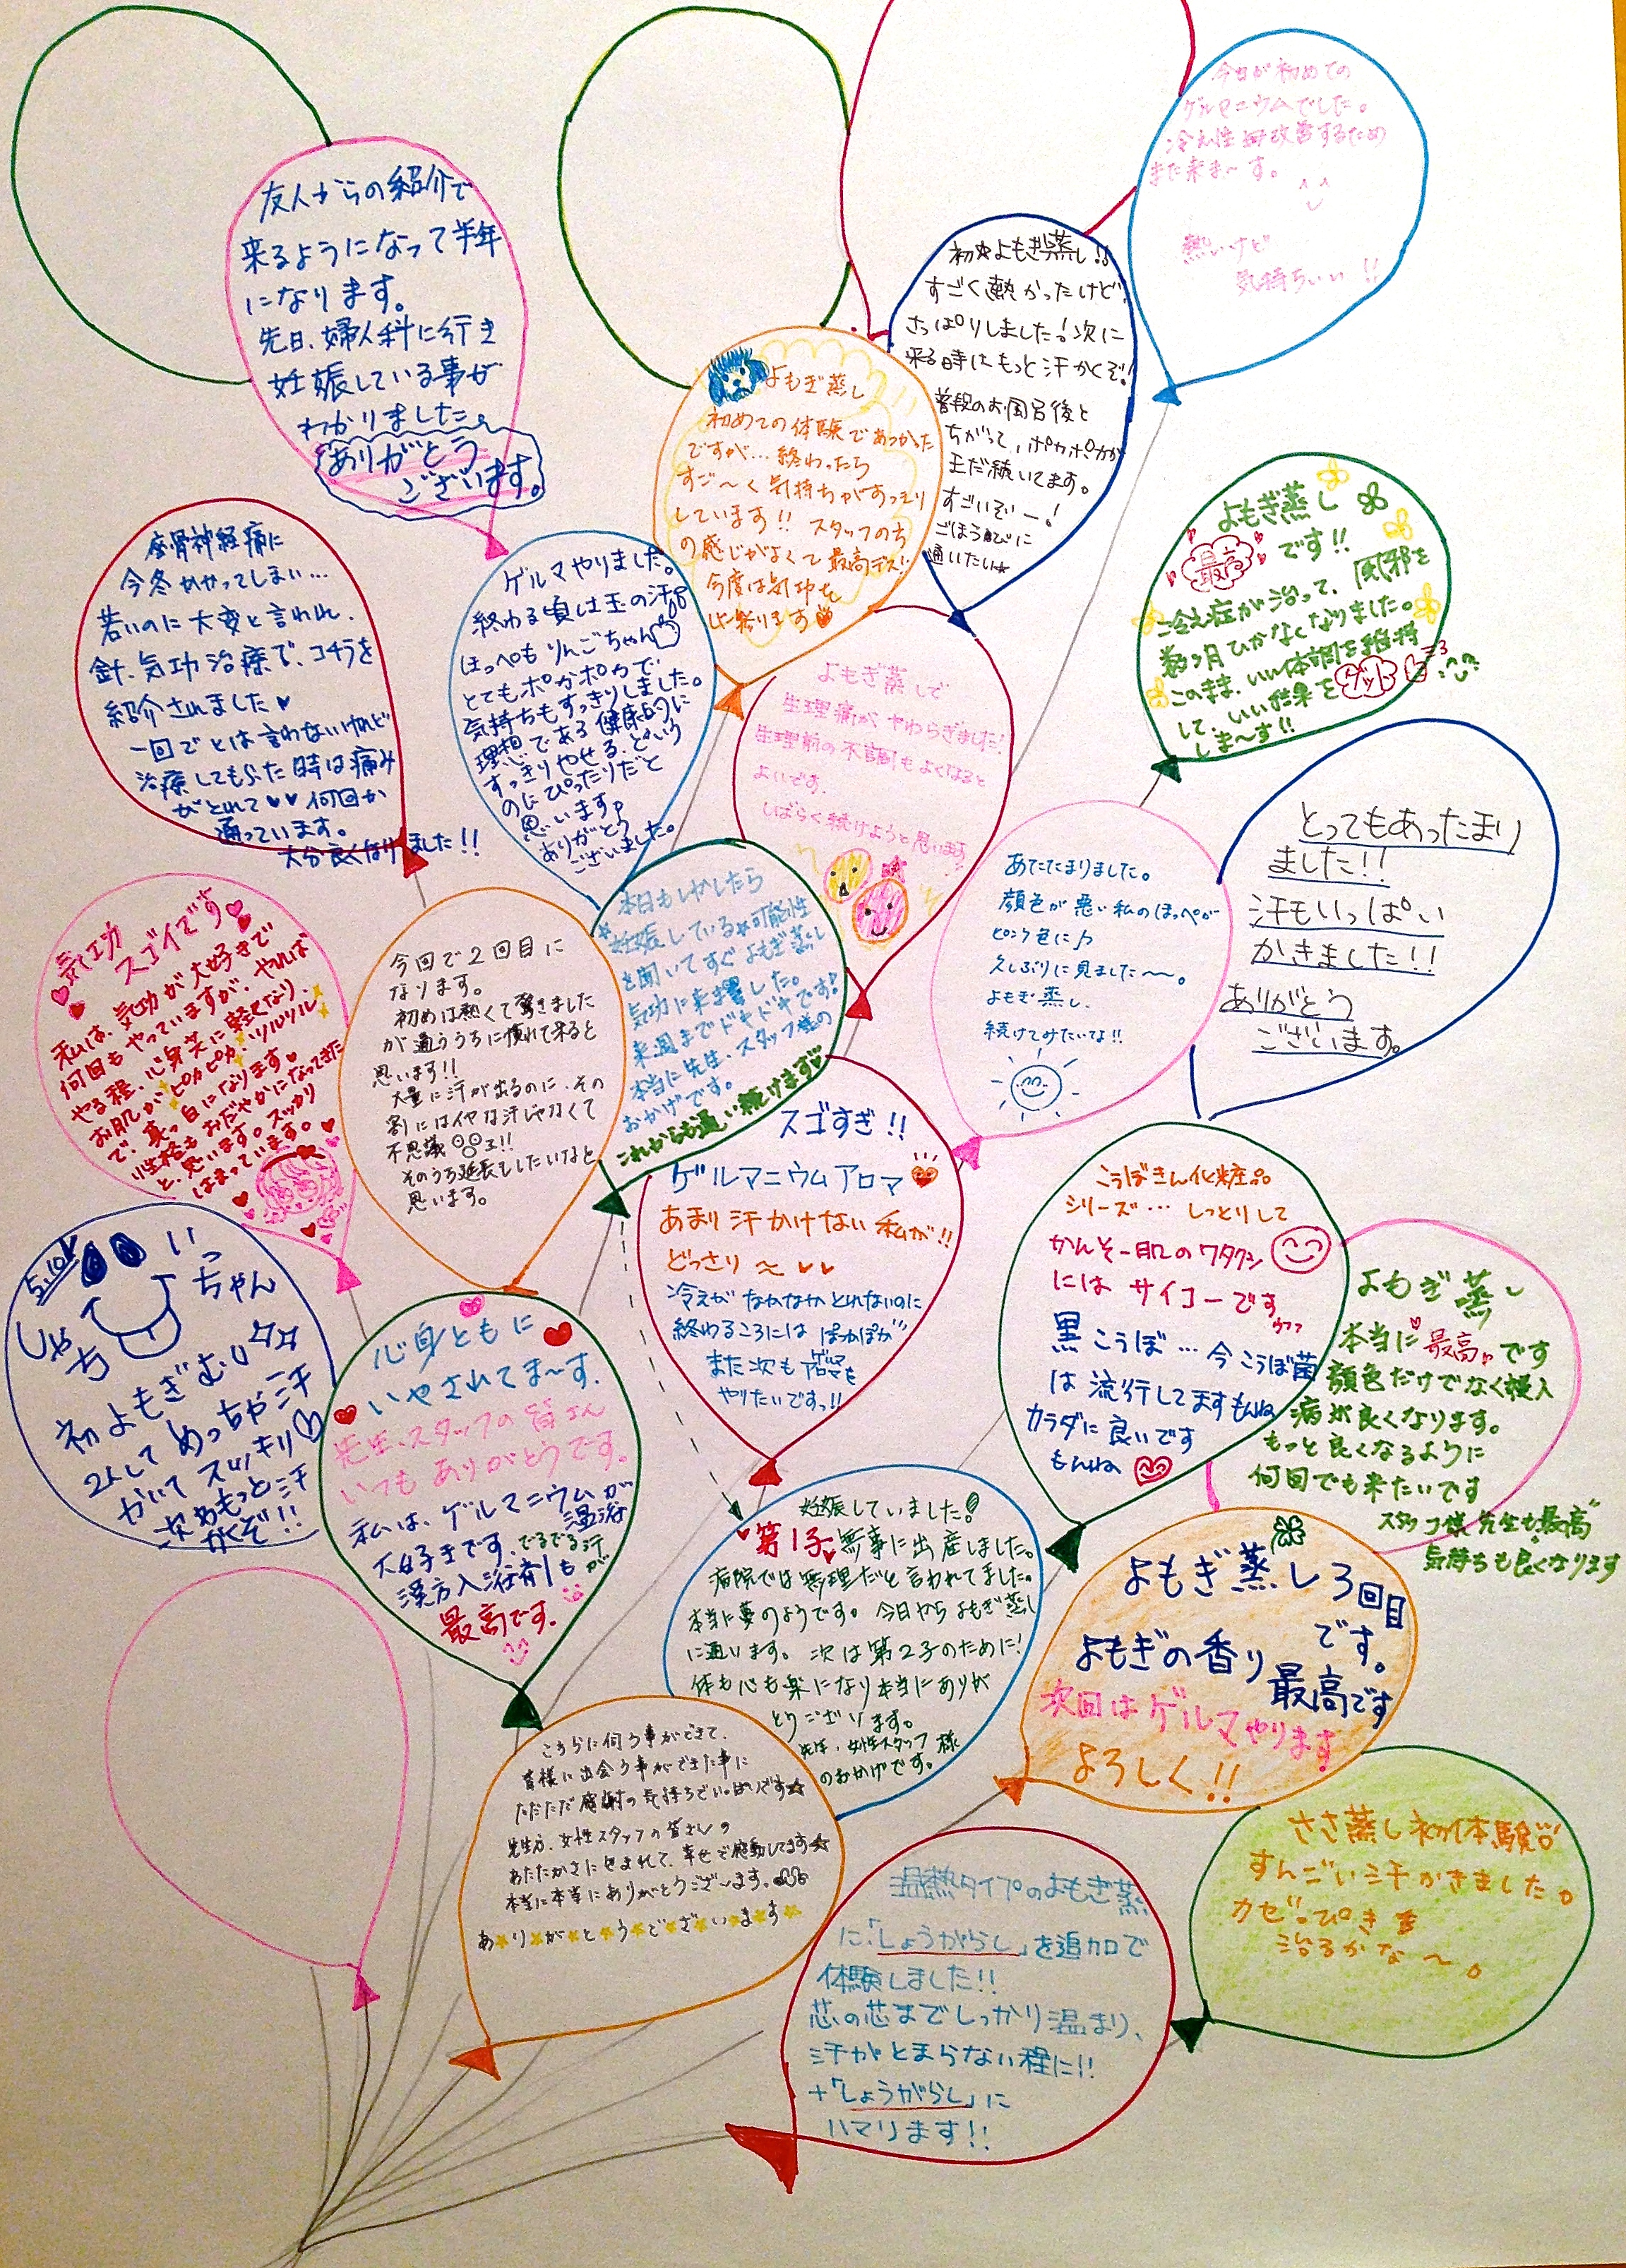 今日が初めての
ゲルマニウムでした。
冷え性 改善するため
また来ま〜す。
熱いけど
気持ちいい!!
友人からの紹介で
来るようになって半年
になります。
先日、婦人科に行き
妊娠している事が
わかりました。
ありがとう
ございます。
初☆よもぎ蒸し!!
すごく熱かったけど、
さっぱりしました!次に
来る時はもっと汗かくぞ!
普段のお風呂後と
ちがって、ポカポカが
まだ続いてます。
すごいぞー!
ごほうびに
通いたい☆
よもぎ蒸し
初めての体験であつかった
ですが…終わったら
すご〜く気持ちがすっきり
しています!!スタッフの方
の感じがよくて最高デス!!
今度は気功も
よもぎ蒸し
最高です!!
冷え症が治って、風邪を
数ヶ月ひかなくなりました。
このまま、いい体調を維持
して、いい結果をゲット
しま〜す!!
座骨神経痛に
今冬かかってしまい…
若いのに大変と言われ、
針、気功治療で、コチラを
紹介されました♥
一回でとは言わないけれど
治療してもらった時は痛み
がとれて♥♥何回か
通っています。
大分良くなりました!!
ゲルマやりました。
終わる頃は玉の汗
ほっぺもりんごちゃん
とてもポカポカで
気持ちもすっきりしました。
理想である健康的に
すっきりやせる、という
のにぴったりだと
思います♪
ありがとう
ございました。
よもぎ蒸しで
生理痛がやわらぎました!
生理前の不調もよくなると
よいです。
しばらく続けようと思います
とってもあったまり
ました!!
汗もいっぱい
かきました!!
ありがとう
ございます。
あたたまりました。
顔色が悪い私のほっぺが
ピンク色に♪
久しぶりに見ました〜。
よもぎ蒸し、
続けてみたいな!!
気功
スゴイです
私は、気功が大好きで
何回もやっていますが、やれば
やる程、心身共に軽くなり、
お肌がピカピカ、ツルツル
で、真っ白になります♥
性格もおだやかになってきた
と、思います。スッカリ
はまっています。
今回で2回目に
なります。
初めは熱くて驚きました
が通ううちに慣れて来ると
思います!!
大量に汗が出るのに、その
割にはイヤな汗じゃなくて
不思議!!
そのうち延長もしたいなと
思います。
本日もしかしたら
妊娠している☆可能性
を聞いてすぐよもぎ蒸し
気功に来ました。
来週までドキドキです!
本当に先生、スタッフ様の
おかげです。
これからも通い続けます♥
スゴすぎ!!
ゲルマニウムアロマ
あまり汗かけない私が!!
どっさり〜♥♥
冷えがなかなかとれないのに
終わるころにはぽかぽか
また次もゲルマアロマを
やりたいですっ!!
こうぼきん化粧品
シリーズ…しっとりして
かんそー肌のワタクシ
にはサイコーです
ウフフ
黒こうぼ…今こうぼ菌
は流行してますもんね
カラダに良いです
もんね
よもぎ蒸し
本当に最高です
顔色だけでなく婦人
病が良くなります。
もっと良くなるように
何回でも来たいです
スタッフ様先生も最高
気持ちも良くなります
5.10
いっ
ちゃん
しゃち
初よもぎむし
2人してめっちゃ汗
かいてスッキリ
次ももっと汗
かくぞ!!
心身ともに
いやされてま〜す。
先生、スタッフの皆さん
いつもありがとうです。
私は、ゲルマニウム温浴が
大好きです、でるでる汗が
漢方入浴剤も
最高です。
妊娠していました!
第1子無事に出産しました。
病院では無理だと言われてました。
本当に夢のようです。今日からよもぎ蒸し
に通います。次は第2子のために!
体も心も楽になり本当にありが
とうございます。
先生、女性スタッフ様
のおかげです。
よもぎ蒸し3回目
です。
よもぎの香り
最高です
次回はゲルマやります
よろしく!!
こちらに伺う事ができて、
皆様に出会う事ができた事に
ただただ感謝の気持ちでいっぱいです☆
先生方、女性スタッフの皆さんの
あたたかさに包まれて、幸せで感動してます☆
本当に本当にありがとうございます。
あ☆り☆が☆と☆う☆ご☆ざ☆い☆ま☆す☆
ささ蒸し初体験
すんごい汗かきました。
カゼっぴきも
治るかな〜。
温熱タイプのよもぎ蒸
に、「しょうがらし」を追加で
体験しました!!
芯の芯までしっかり温まり、
汗がとまらない程に!!
+「しょうがらし」に
ハマります!!